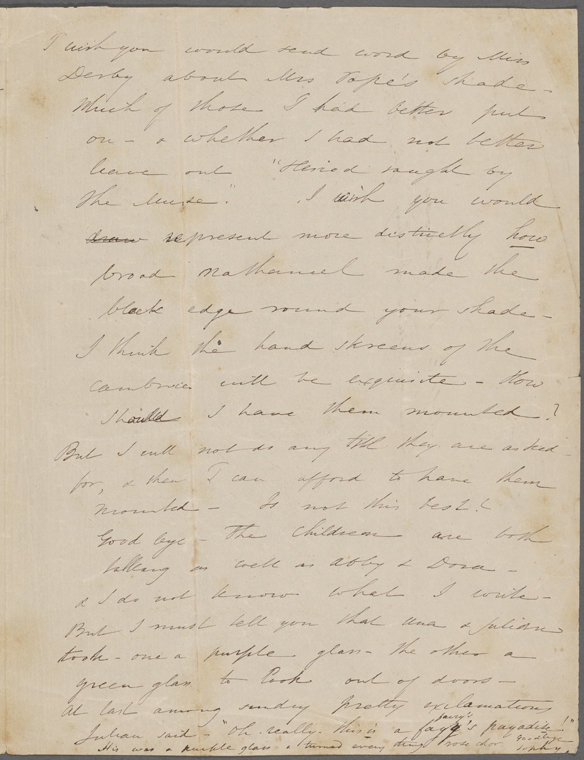 I wish you would send word by Miss
Derby about Mrs Pope's shade-
Which of those I had better put
on - & whether I had not better
leave out "Hesiod taught by
the Muse". I wish you would
draw represent more distinctly how
broad Nathaniel made the
black edge round your shade-
I think the hand skreens of the
cambric will be exquisite - How
should I have them mounted?
But I will not do any till they are asked
for, & then I can afford to have them
mounted - Is not this best?
Good bye - The children are both
talking as well as Abby & Dora -
& I do not know what I write-
But I must tell you that Una & Julian
took - one a purple glass - the other a
green glass to look out of doors-
At last among sundry pretty exclamations
Julian said - "Oh really this is a fairy's
His was a purple glass & turned every thing rose color